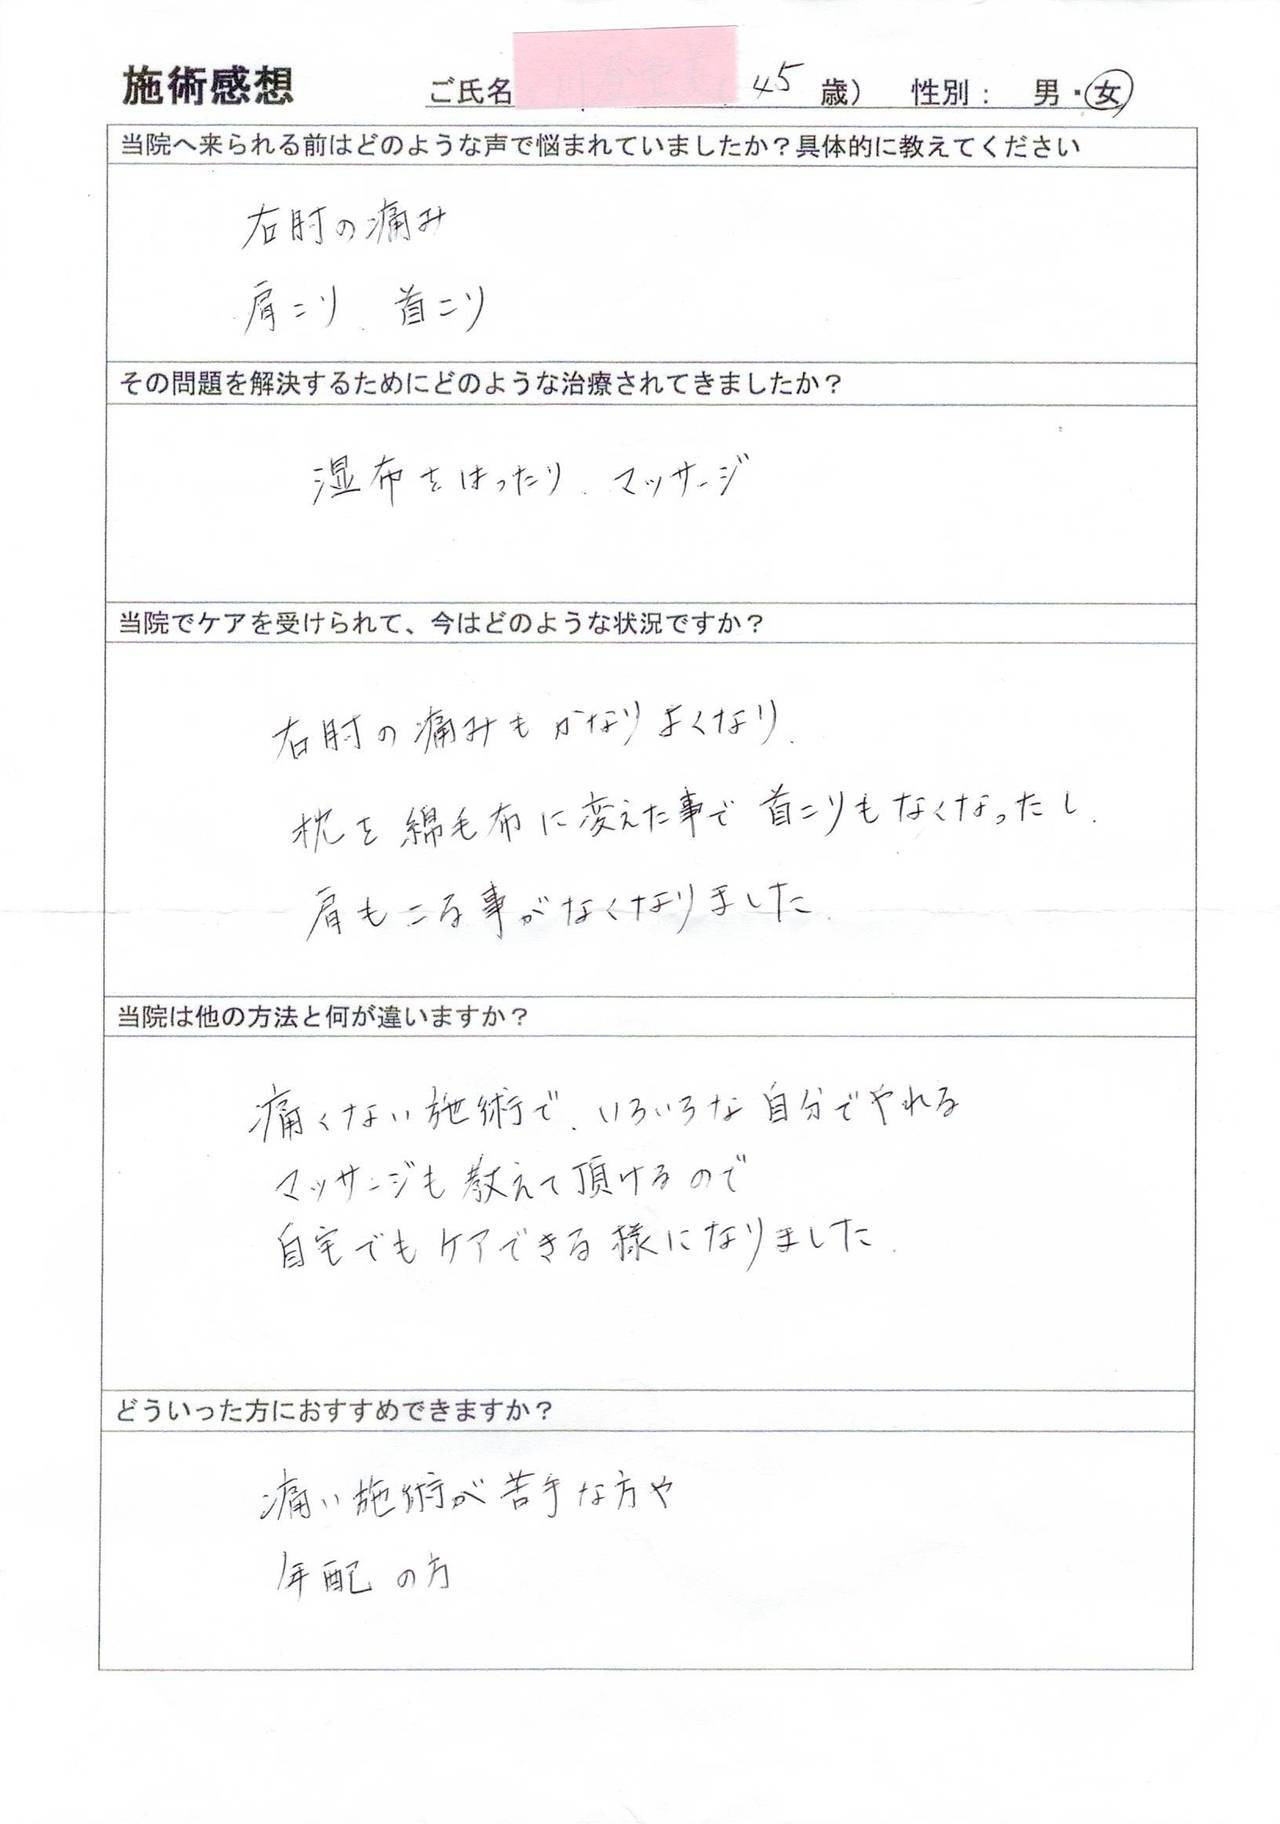 施術感想 ご氏名 45 歳） 性別： 男・女
当院へ来られる前はどのような声で悩まれていましたか？具体的に教えてください
右肘の痛み
肩こり、首こり
その問題を解決するためにどのような治療されてきましたか？
湿布をはったり、マッサージ
当院でケアを受けられて、今はどのような状況ですか？
右肘の痛みもかなりよくなり、
枕を綿毛布に変えた事で首こりもなくなったし、
肩もこる事がなくなりました。
当院は他の方法と何が違いますか？
痛くない施術で、いろいろな自分でやれる
マッサージも教えて頂けるので
自宅でもケアできる様になりました。
どういった方におすすめできますか？
痛い施術が苦手な方や
年配の方